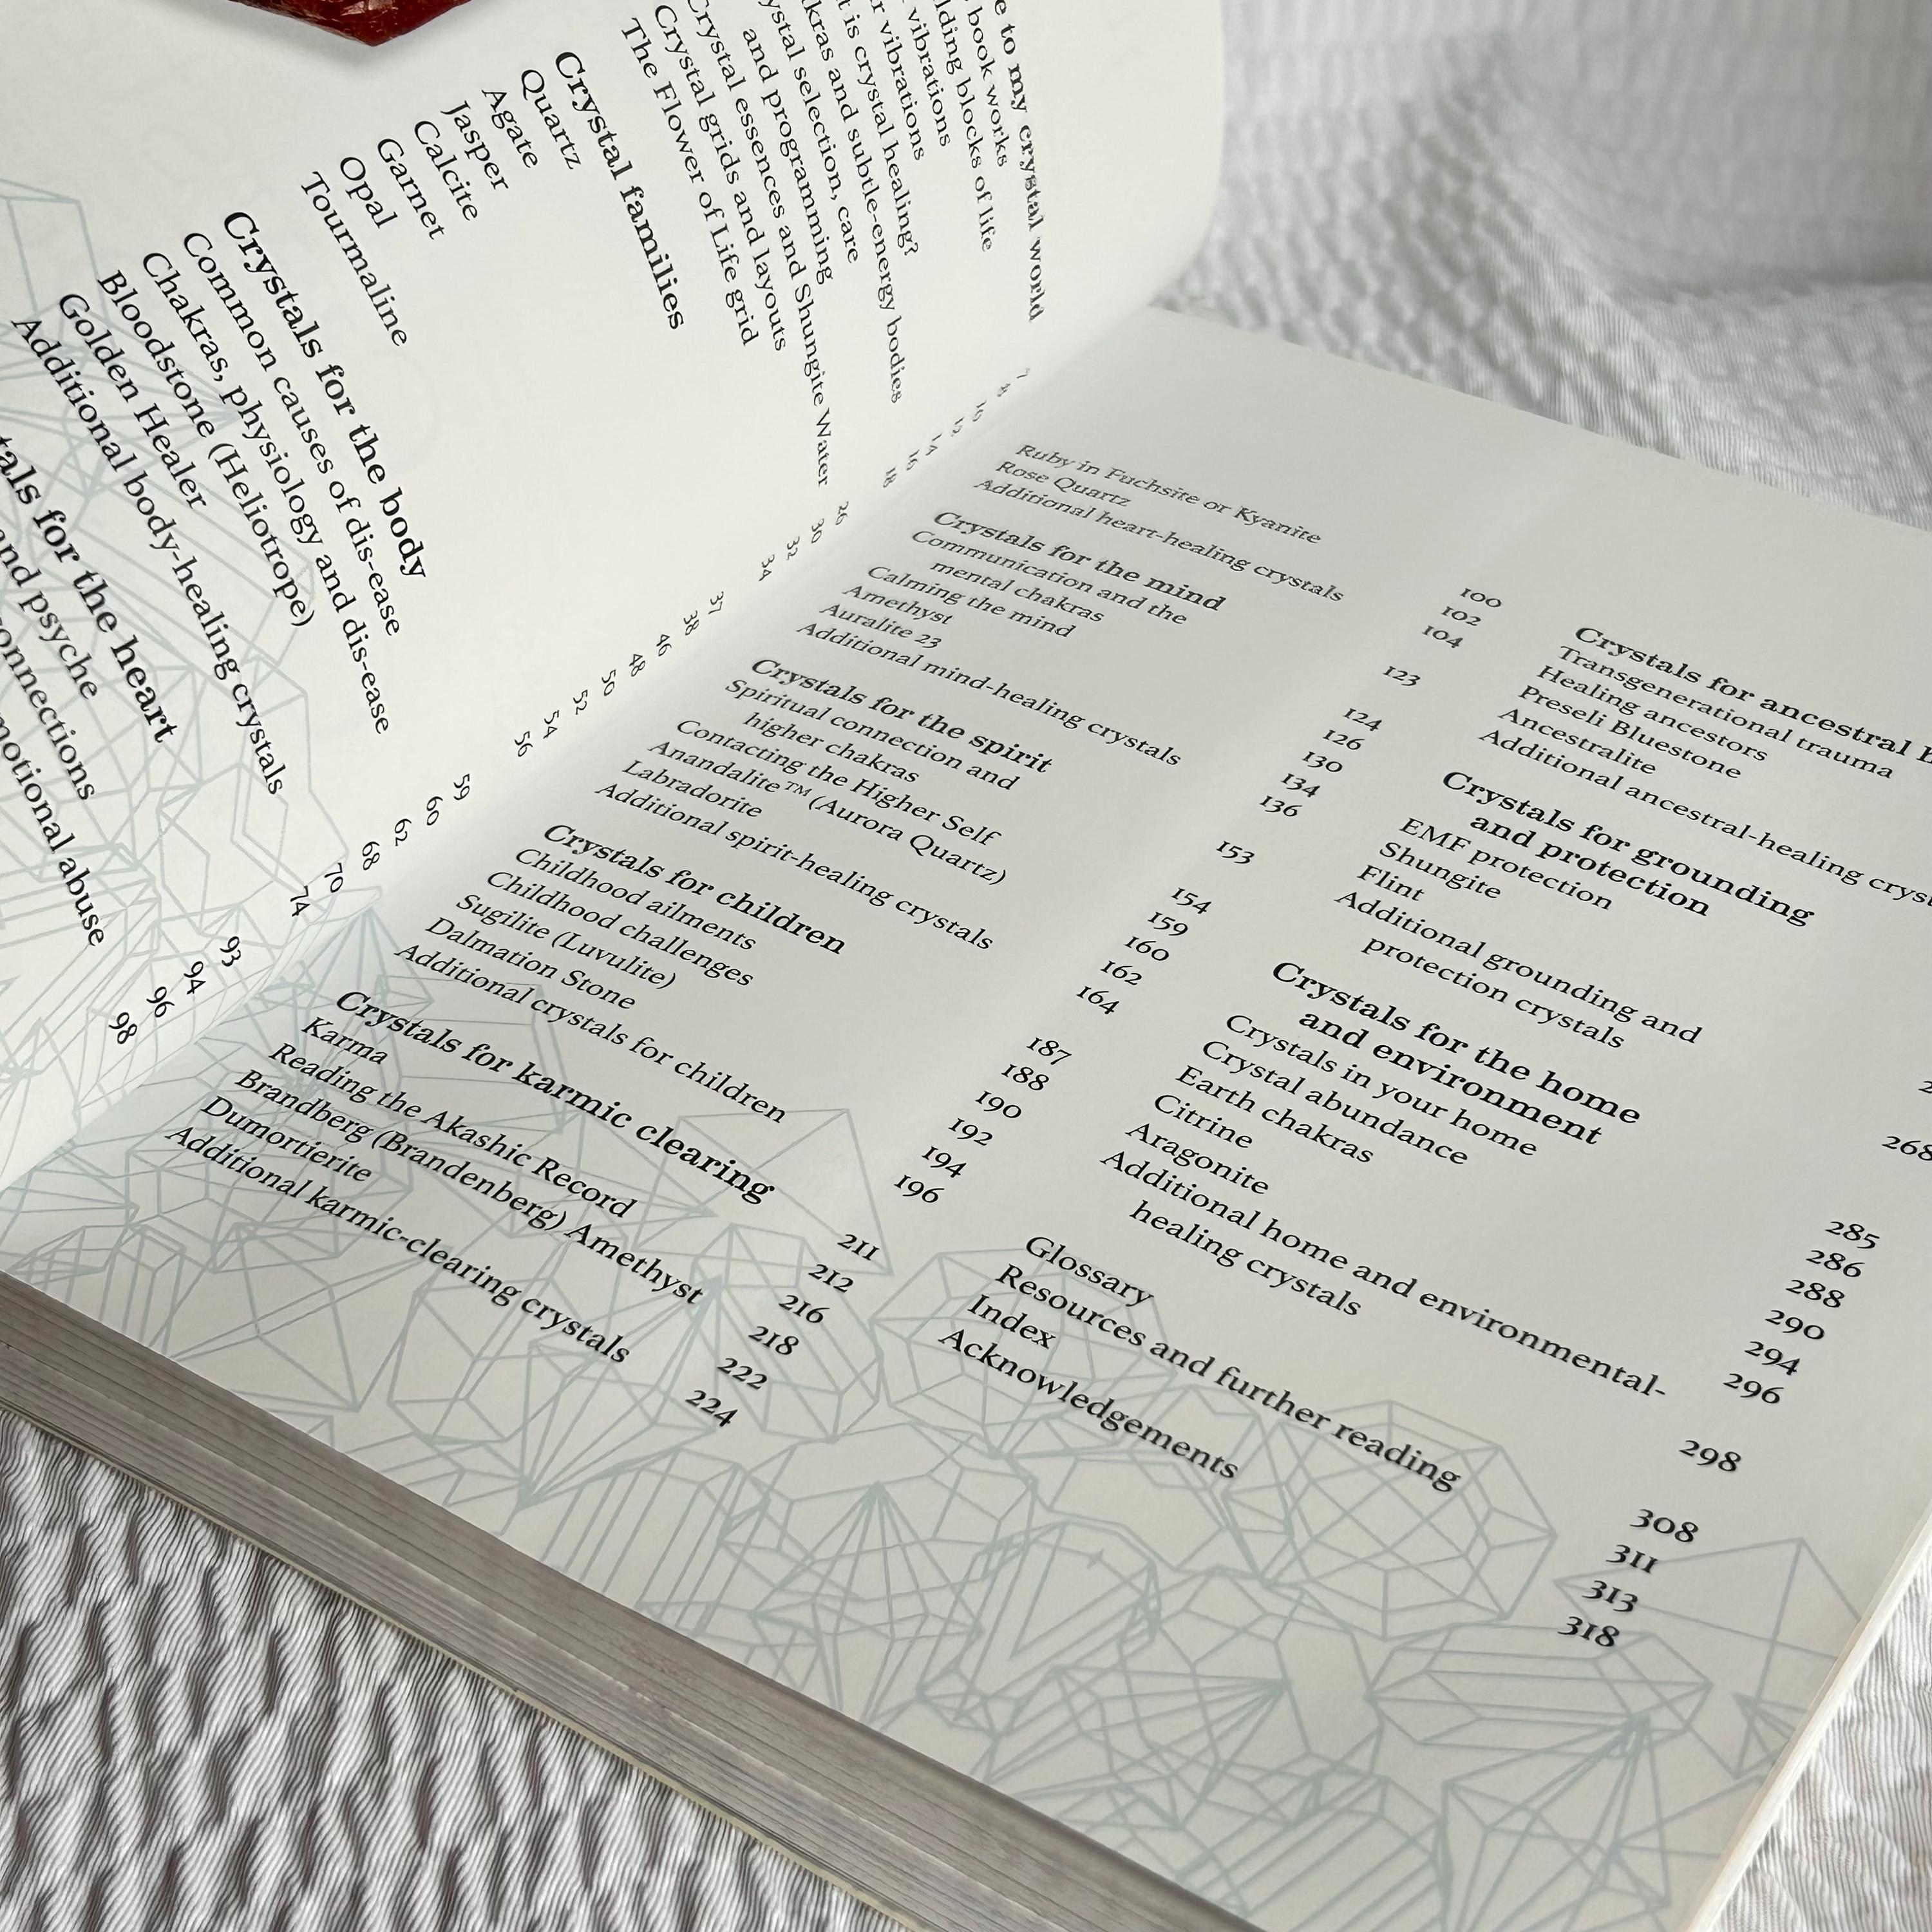 to my crystal world 7
book works 8
blocks of life 10
vibrations 12
vibrations 14
is crystal healing? 16
and subtle-energy bodies 18
selection, care
and programming 26
Crystal essences and Shungite Water 30
Crystal grids and layouts 32
The Flower of Life grid 34
Crystal families 37
Quartz 38
Agate 46
Jasper 48
Calcite 50
Garnet 52
Opal 54
Tourmaline 56
Crystals for the body 59
Common causes of dis-ease 60
Chakras, physiology and dis-ease 62
Bloodstone (Heliotrope) 68
Golden Healer 70
Additional body-healing crystals 74
for the heart 93
and psyche 94
connections 96
abuse 98
Ruby in Fuchsite or Kyanite 100
Rose Quartz 102
Additional heart-healing crystals 104
Crystals for the mind 123
Communication and the
mental chakras 124
Calming the mind 126
Amethyst 130
Auralite 23 134
Additional mind-healing crystals 136
Crystals for the spirit 153
Spiritual connection and
higher chakras 154
Contacting the Higher Self 159
Anandalite™ (Aurora Quartz) 160
Labradorite 162
Additional spirit-healing crystals 164
Crystals for children 187
Childhood ailments 188
Childhood challenges 190
Sugilite (Luvulite) 192
Dalmation Stone 194
Additional crystals for children 196
Crystals for karmic clearing 211
Karma 212
Reading the Akashic Record 216
Brandberg (Brandenberg) Amethyst 218
Dumortierite 222
Additional karmic-clearing crystals 224
Crystals for ancestral
Transgenerational trauma
Healing ancestors
Preseli Bluestone
Ancestralite
Additional ancestral-healing
Crystals for grounding
and protection
EMF protection
Shungite
Flint
Additional grounding and
protection crystals 268
Crystals for the home
and environment 285
Crystals in your home 286
Crystal abundance 288
Earth chakras 290
Citrine 294
Aragonite 296
Additional home and environmental-
healing crystals 298
Glossary 308
Resources and further reading 311
Index 313
Acknowledgements 318